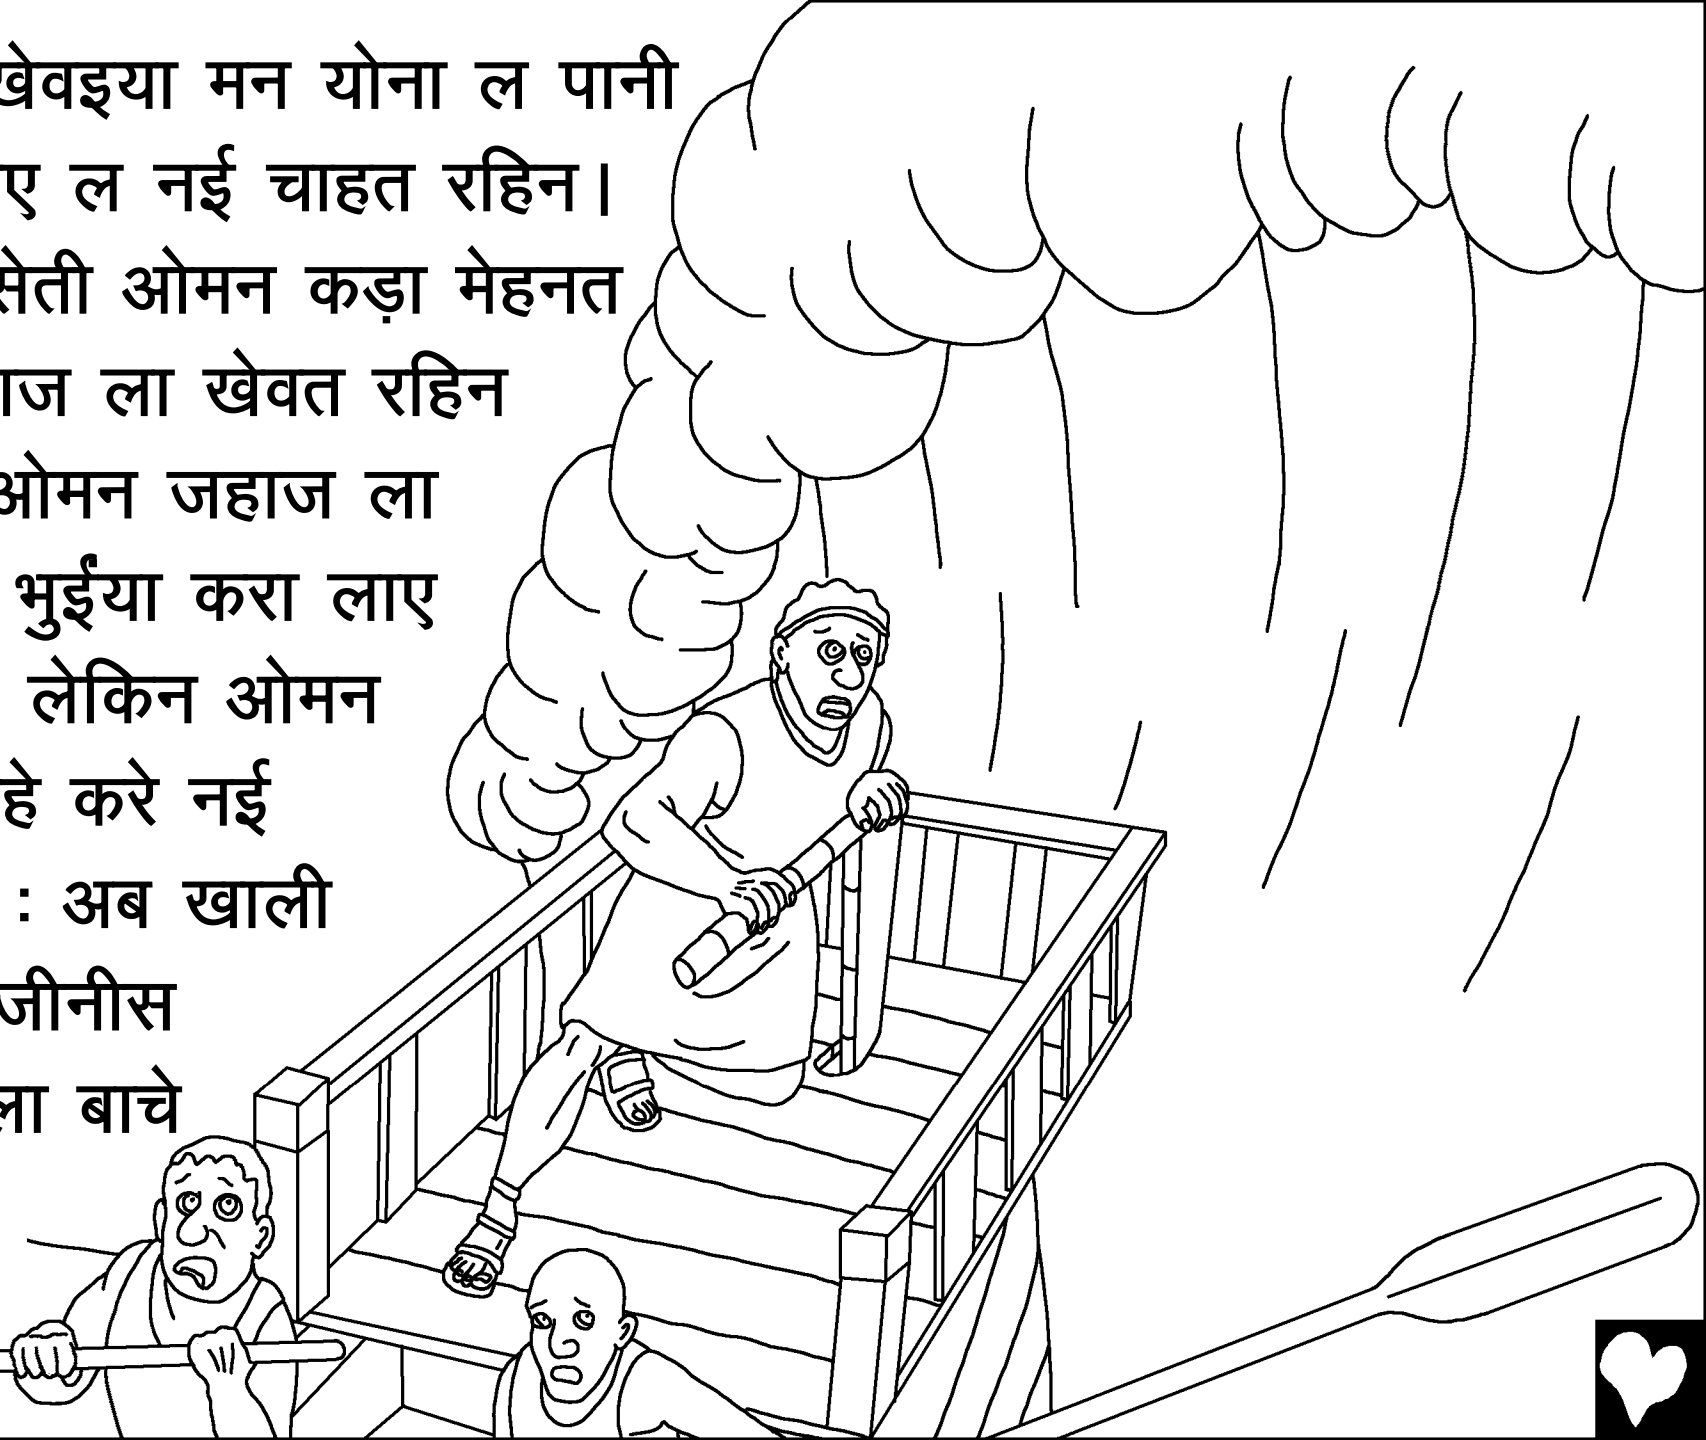 खेवइया मन योना ल पानी
ए ल नई चाहत रहिन।
सेती ओमन कड़ा मेहनत
ाज ला खेवत रहिन
ओमन जहाज ला
भुईंया करा लाए
लेकिन ओमन
हे करे नई
: अब खाली
जीनीस
ला बाचे